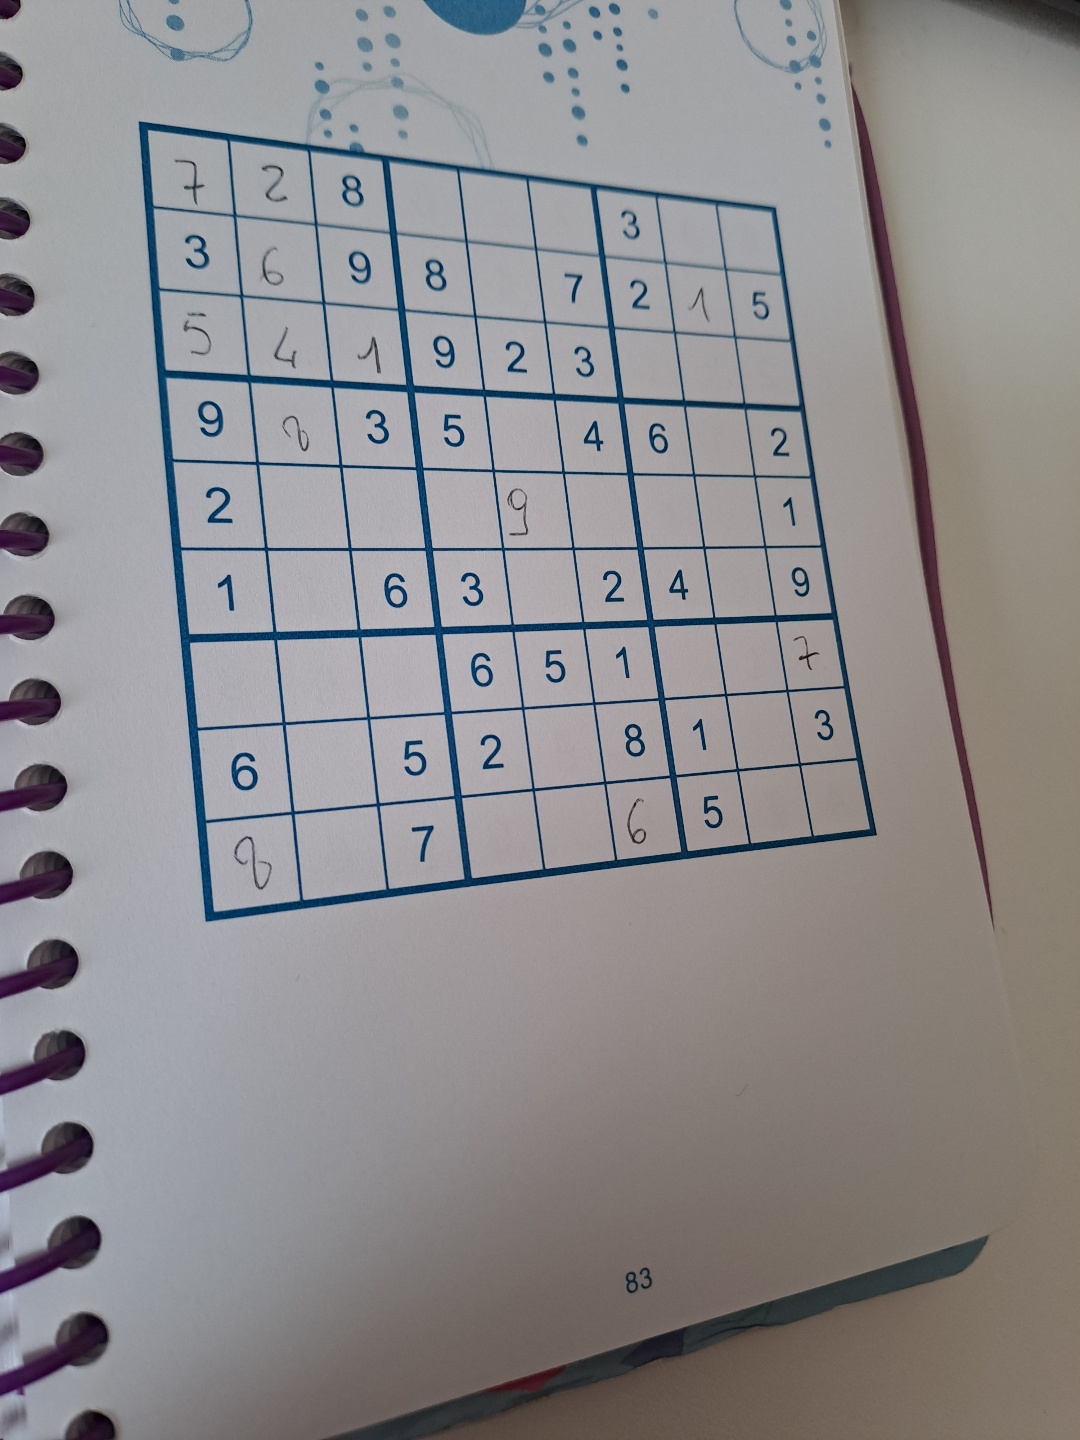 7 2 8 3
3 6 9 8 7 2 1 5
5 4 1 9 2 3
9 8 3 5 4 6 2
2 9 1
1 6 3 2 4 9
6 5 1 7
6 5 2 8 1 3
8 7 6 5
83